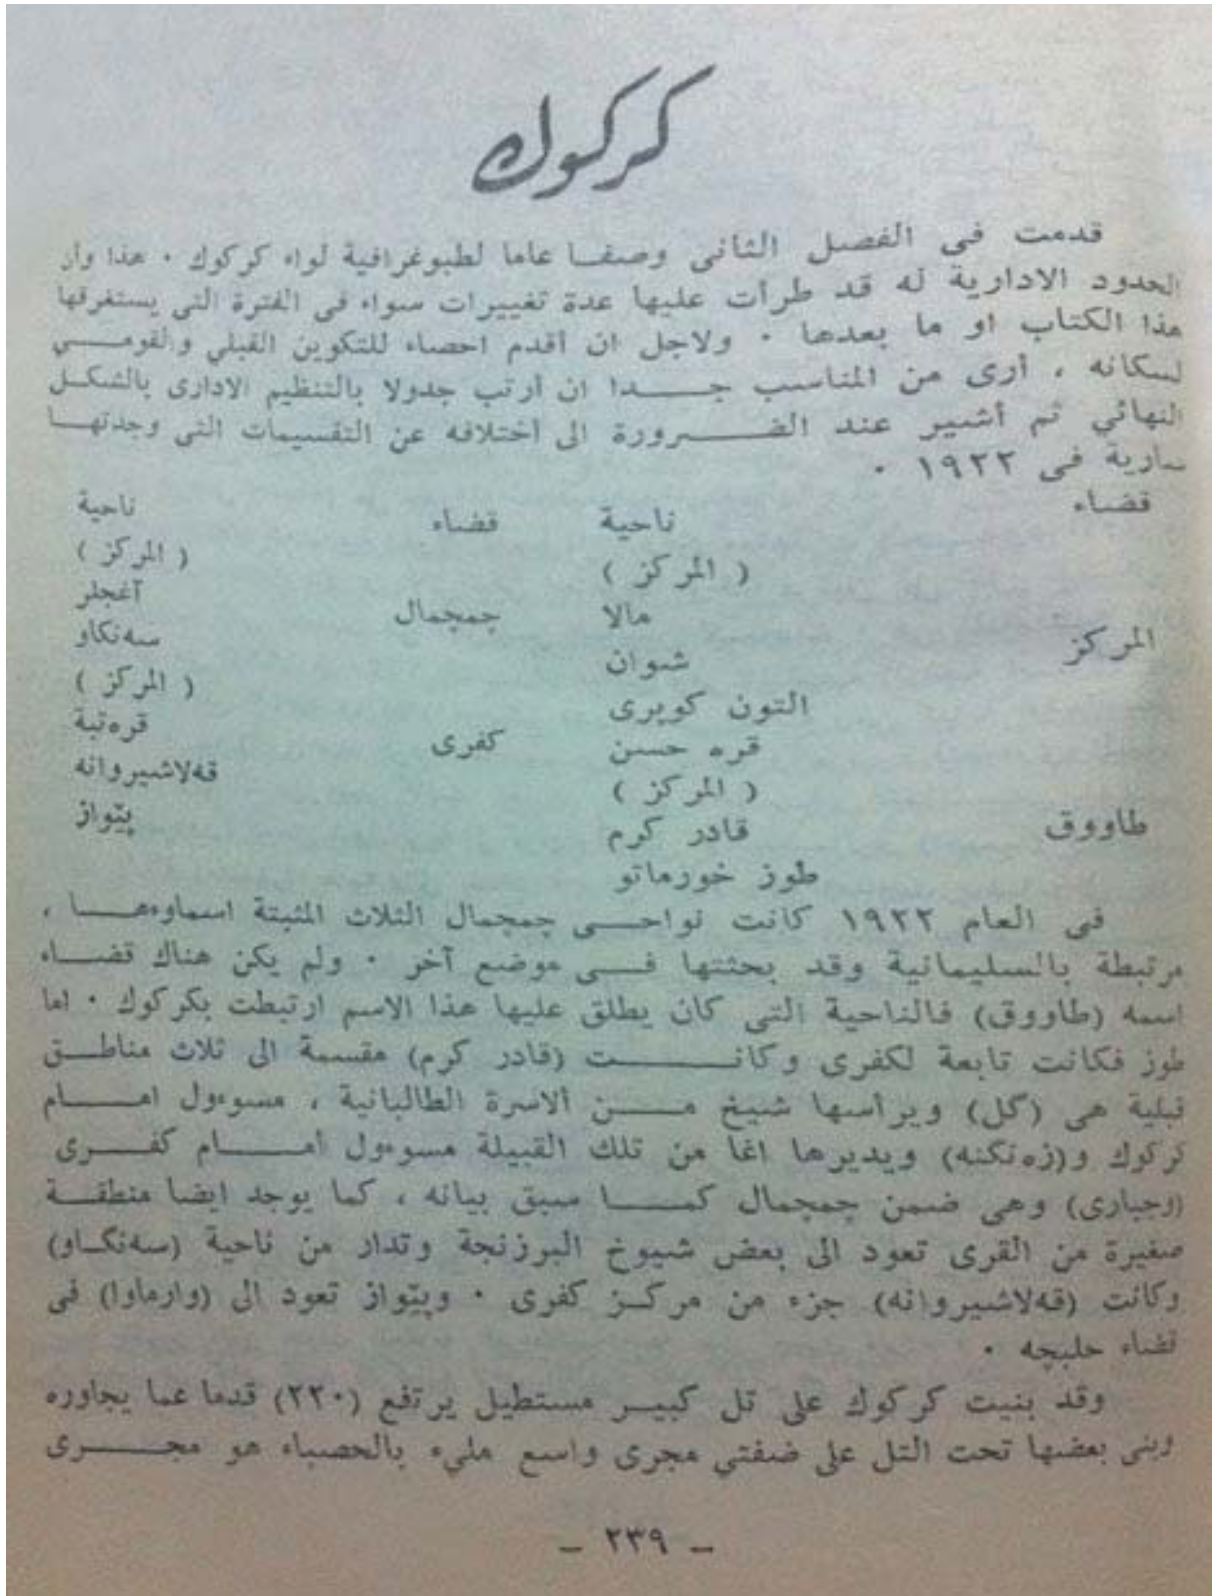 كركوك
قدمت فى الفصل الثانى وصفا عاما لطبوغرافية لواء كركوك ٠ هذا وان
الحدود الادارية له قد طرأت عليها عدة تغييرات سواء فى الفترة التى يستغرقها
هذا الكتاب او ما بعدها ٠ ولاجل ان أقدم احصاء للتكوين القبلي والقومي
لسكانه ، أرى من المناسب جدا ان أرتب جدولا بالتنظيم الادارى بالشكل
النهائي ثم أشير عند الضرورة الى أختلافه عن التقسيمات التى وجدتها
سارية فى ١٩٢٢ ٠
قضاء ناحية قضاء ناحية
( المركز ) ( المركز )
مالا چمچمال آغجلر
المركز شوان سەنكاو
التون كوپرى ( المركز )
قره حسن كفرى قرەتپة
( المركز ) قەلاشيروانه
طاووق قادر كرم پێواز
طوز خورماتو
فى العام ١٩٢٢ كانت نواحى چمچمال الثلاث المثبتة اسماوءها ،
مرتبطة بالسليمانية وقد بحثتها فى موضع آخر ٠ ولم يكن هناك قضاء
اسمه (طاروق) فالناحية التى كان يطلق عليها هذا الاسم ارتبطت بكركوك ٠ اما
طوز فكانت تابعة لكفرى وكانت (قادر كرم) مقسمة الى ثلاث مناطق
قبلية هى (گل) ويرأسها شيخ من ألاسرة الطالبانية ، مسوءول امام
كركوك و(زەنكنه) ويديرها اغا من تلك القبيلة مسوءول أمام كفرى
(وجبارى) وهى ضمن چمچمال كما سبق بيانه ، كما يوجد ايضا منطقة
صغيرة من القرى تعود الى بعض شيوخ البرزنجة وتدار من ناحية (سەنكاو)
وكانت (قەلاشيروانه) جزء من مركز كفرى ٠ وپێواز تعود الى (وارماوا) فى
قضاء حلبچه ٠
وقد بنيت كركوك على تل كبير مستطيل يرتفع (٢٢٠) قدما عما يجاوره
وبنى بعضها تحت التل على ضفتي مجرى واسع مليء بالحصباء هو مجرى
– ٢٣٩ –